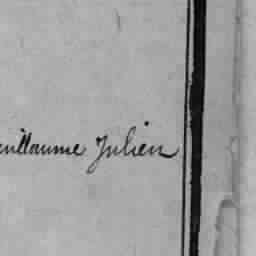 uillaume Julien